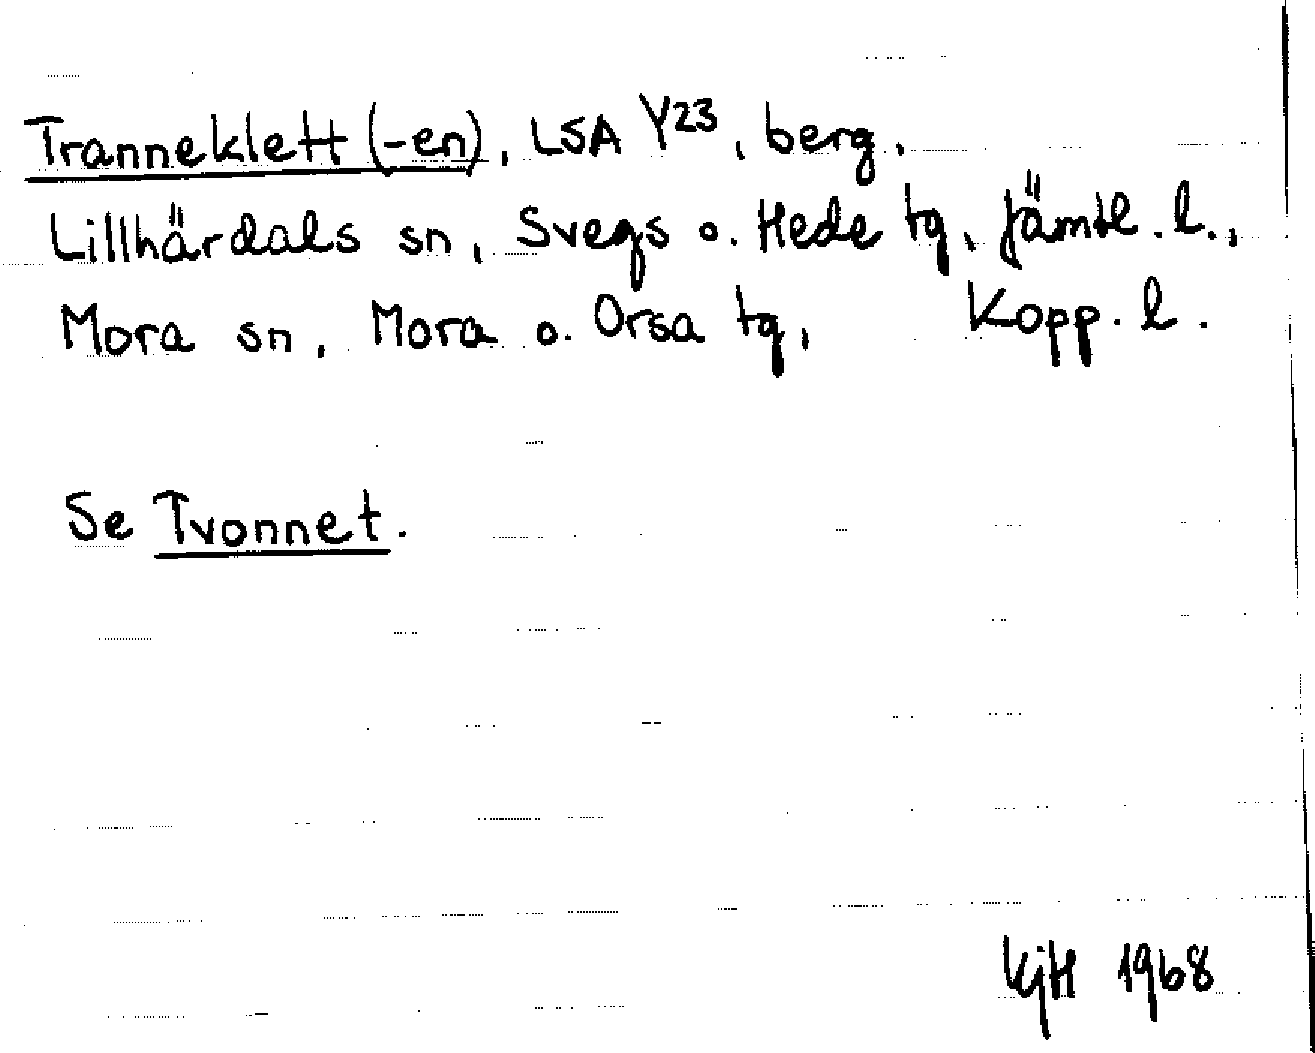 Tranneklett (-en), LSA Y23, berg.
Lillhärdals sn, Svegs o. Hede tg, Jämtl. l.,
Mora sn, Mora o. Orsa tg, Kopp. l.
Se Tvonnet.
KjH 1968